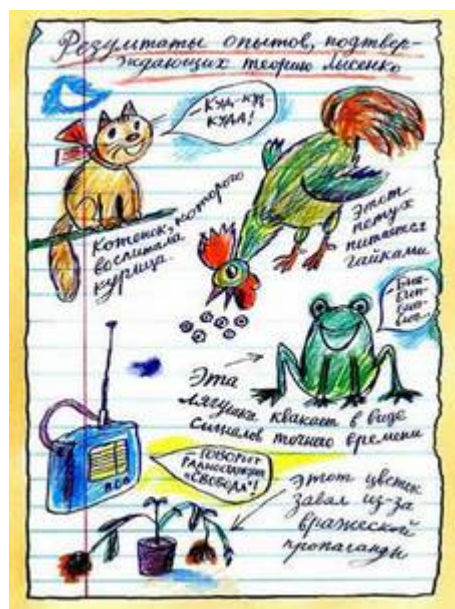 Результаты опытов, подтвер-
ждающих теорию Лысенко
-КУД-КУД-
КУДА!
Котенок, которого
воспитала
курица.
Этот
петух
питается
гайками
-Бип-
бип-
бип-
бип...
Эта
лягушка квакает в виде
сигналов точного времени
ГОВОРИТ
РАДИОСТАНЦИЯ
"СВОБОДА"!
Этот цветок
завял из-за
вражеской
пропаганды